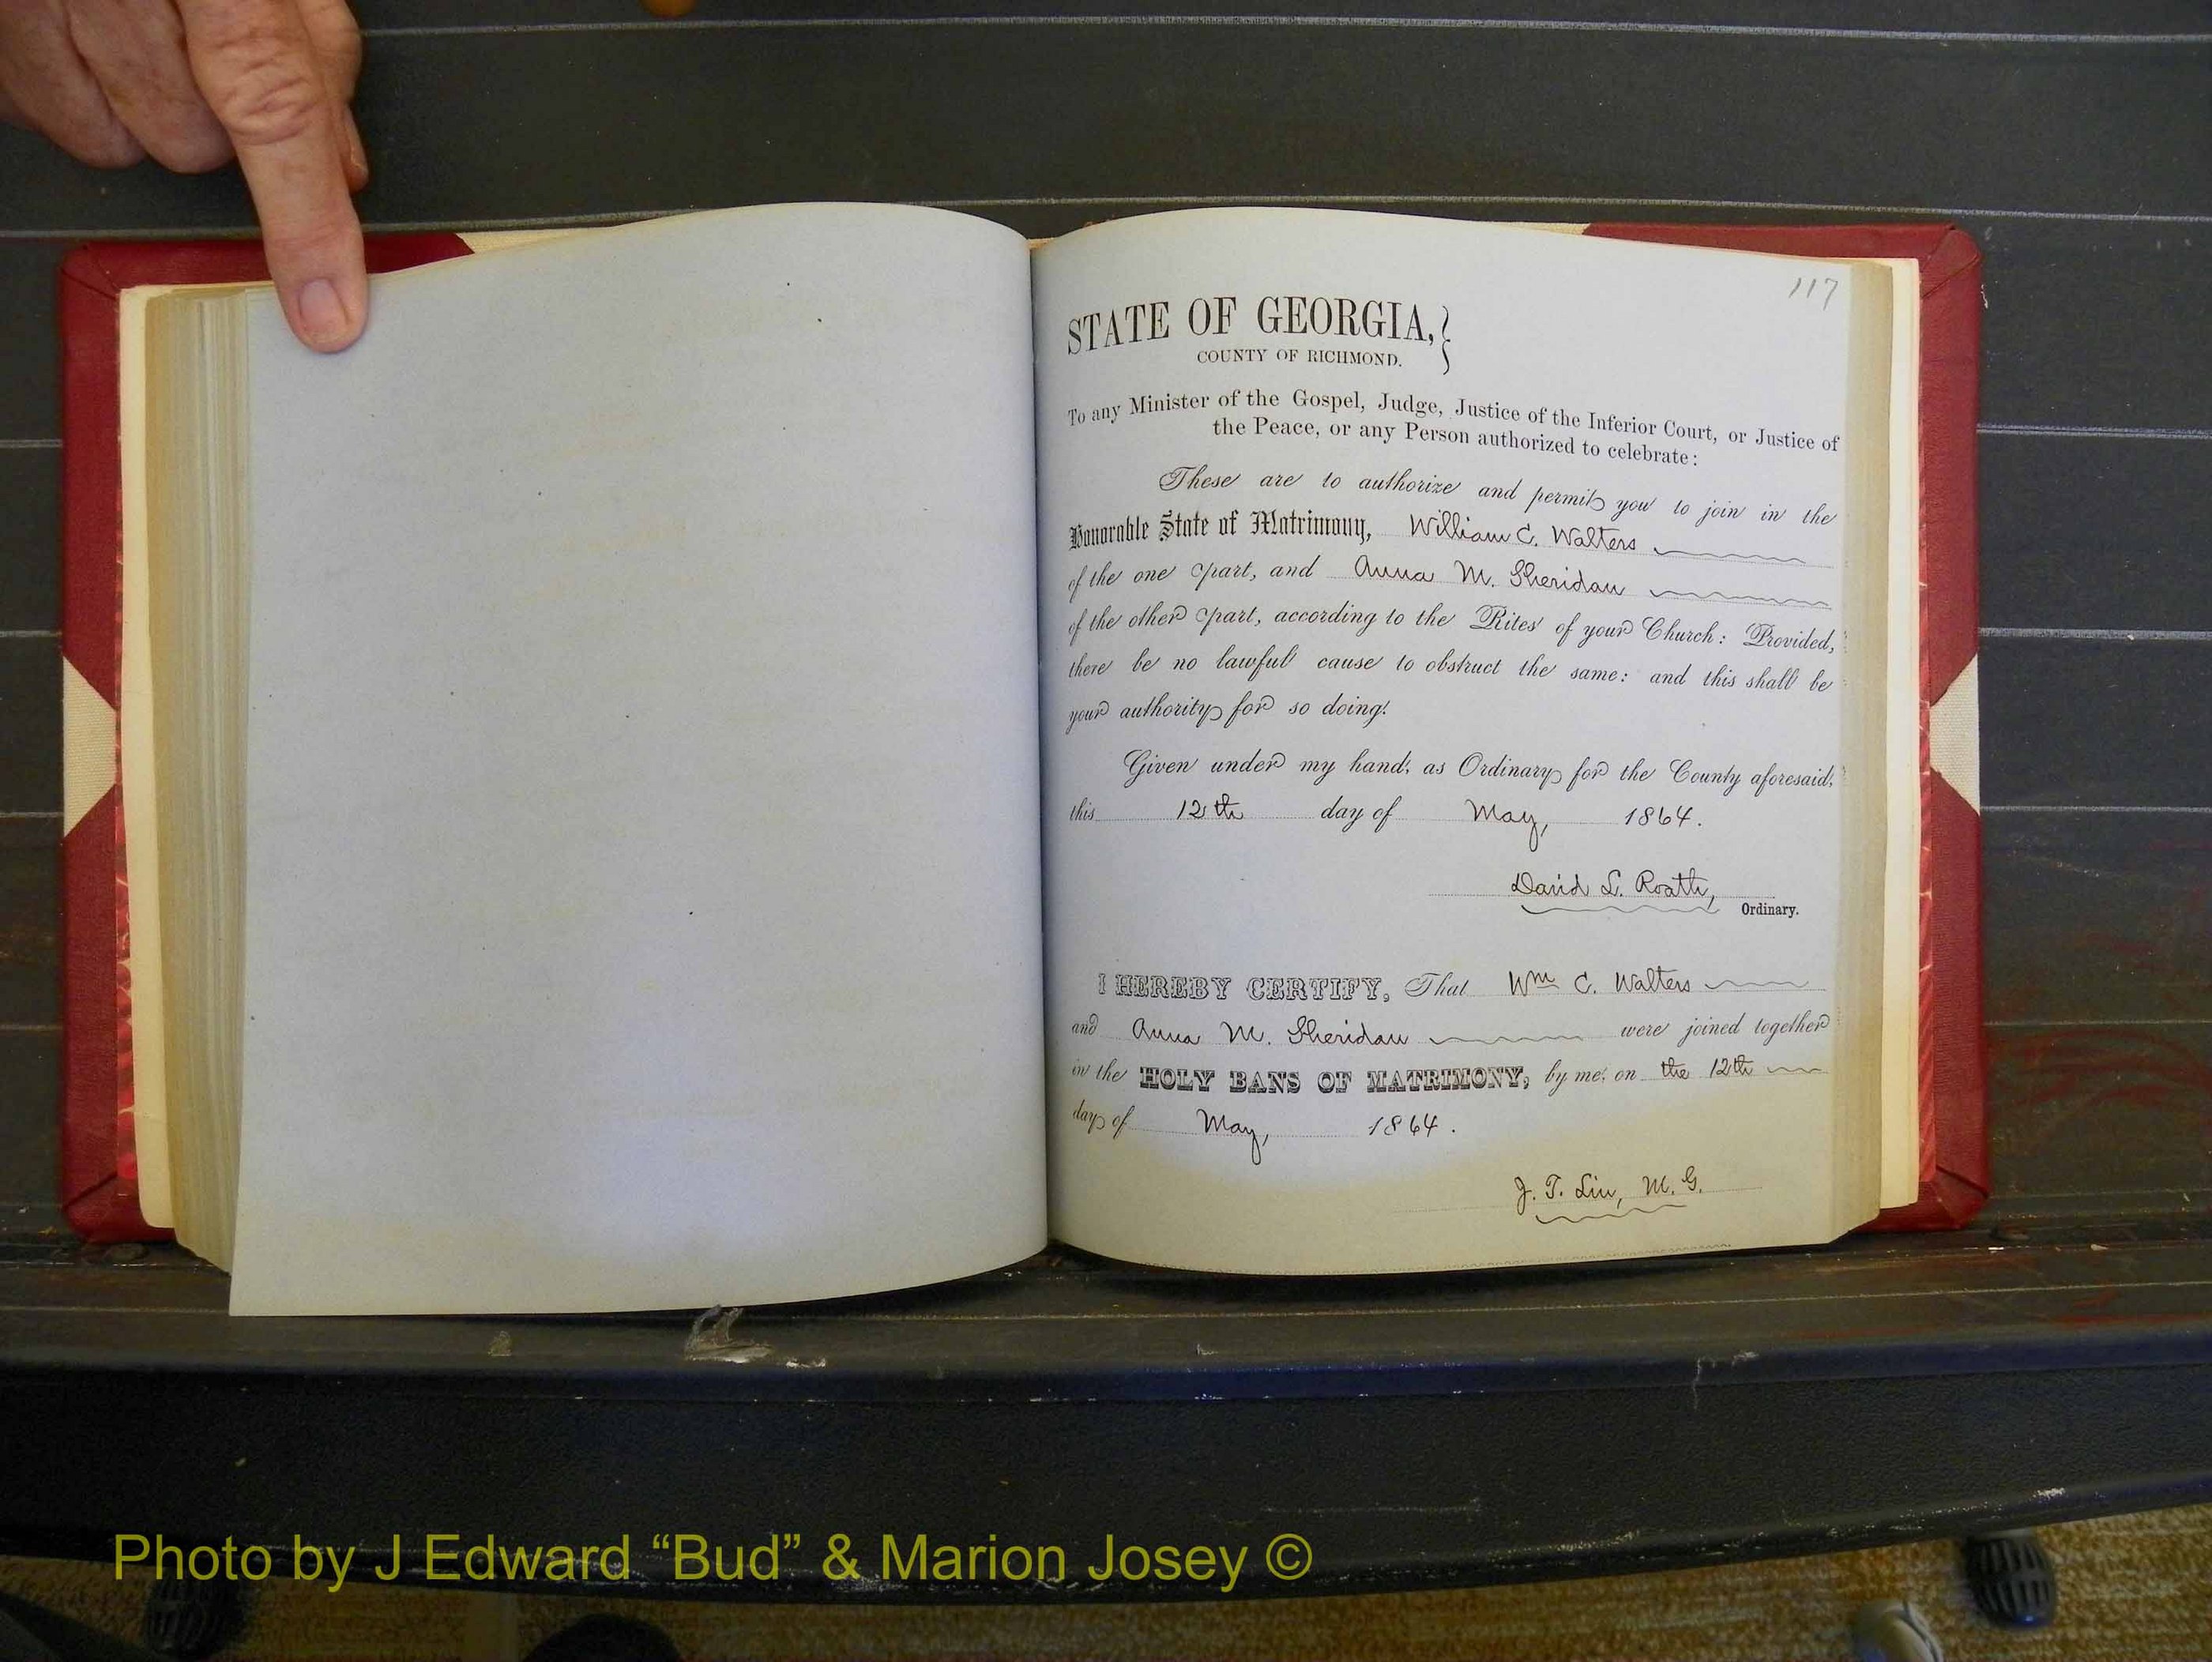 117
STATE OF GEORGIA,
COUNTY OF RICHMOND.
To any Minister of the Gospel, Judge, Justice of the Inferior Court, or Justice of
the Peace, or any Person authorized to celebrate:
These are to authorize and permit you to join in the
Honorable State of Matrimony, William C. Walters
of the one part, and Anna M. Sheridan
of the other part, according to the Rites of your Church: Provided,
there be no lawful cause to obstruct the same: and this shall be
your authority for so doing.
Given under my hand, as Ordinary for the County aforesaid,
this 12th day of May, 1864.
David L. Roath,
Ordinary.
I HEREBY CERTIFY, That Wm C. Walters
and Anna M. Sheridan were joined together
in the HOLY BANS OF MATRIMONY, by me, on the 12th
day of May, 1864.
J. T. Lin, M. G.
Photo by J Edward “Bud” & Marion Josey ©